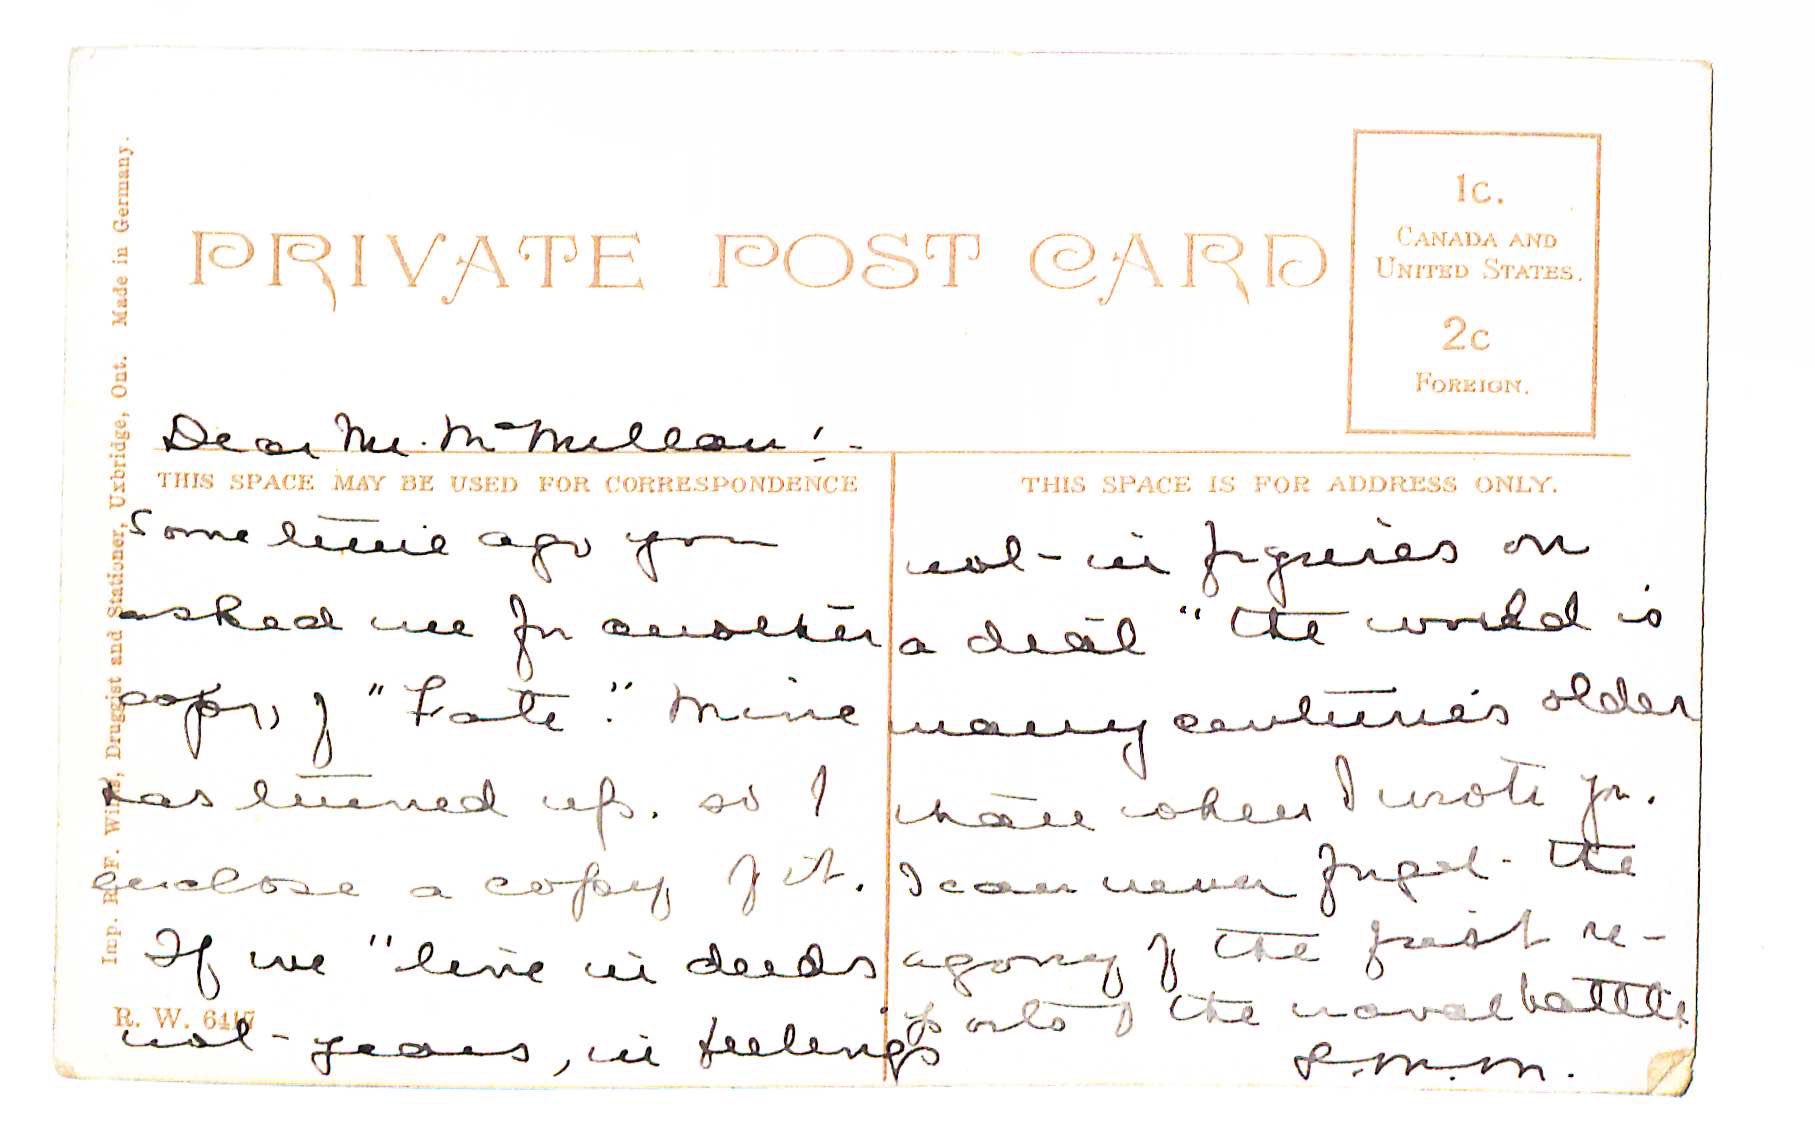 PRIVATE POST CARD
1c.
CANADA AND
UNITED STATES.
2c
FOREIGN.
Imp. R. F. Willis, Druggist and Stationer, Uxbridge, Ont. Made in Germany.
Dear Mr. McMillan:-
THIS SPACE MAY BE USED FOR CORRESPONDENCE
Some time ago you
asked me for another
copy of "Fate". Mine
has turned up. so I
enclose a copy of it.
If we "live in deeds
not years, in feelings
R. W. 6417
THIS SPACE IS FOR ADDRESS ONLY.
not in figures on
a dial" the world is
many centuries older
than when I wrote you.
I can never forget the
agony of the first re-
ports of the naval battle
L.M.M.